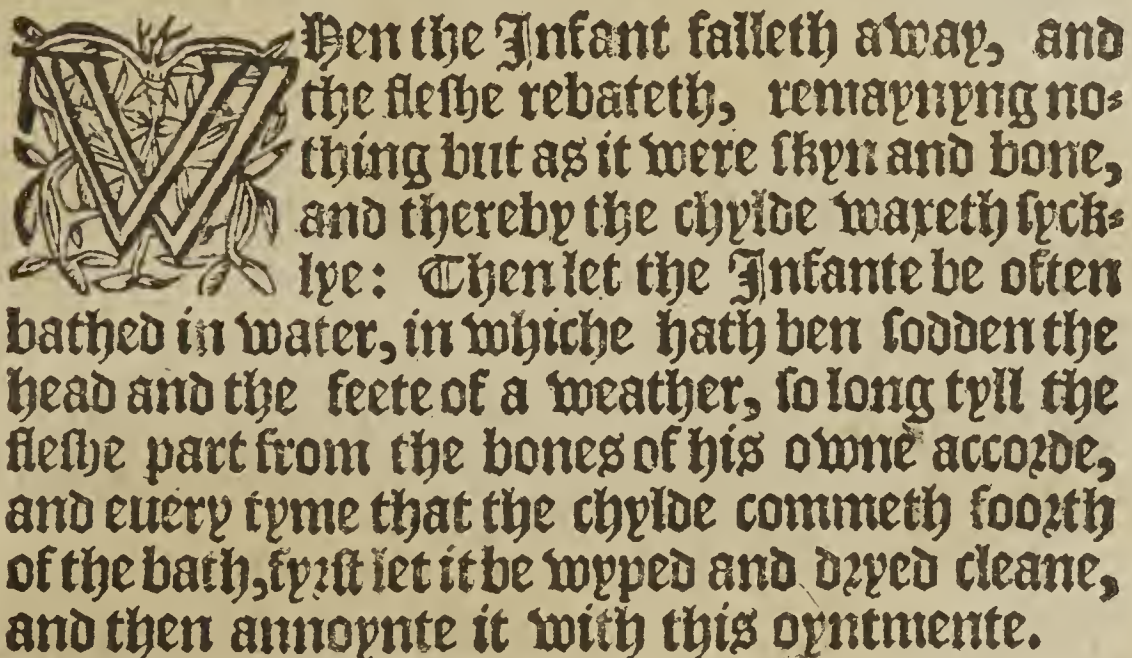 WHen the Infant falleth away, and
the fleshe rebateth, remaynyng no-
thing but as it were skyn and bone,
and thereby the chylde waxeth syck-
lye: Then let the Infante be often
bathed in water, in whiche hath ben sodden the
head and the feete of a weather, so long tyll the
fleshe part from the bones of his owne accorde,
and euery tyme that the chylde commeth foorth
of the bath, fyrst let it be wyped and dryed cleane,
and then annoynte it with this oyntmente.